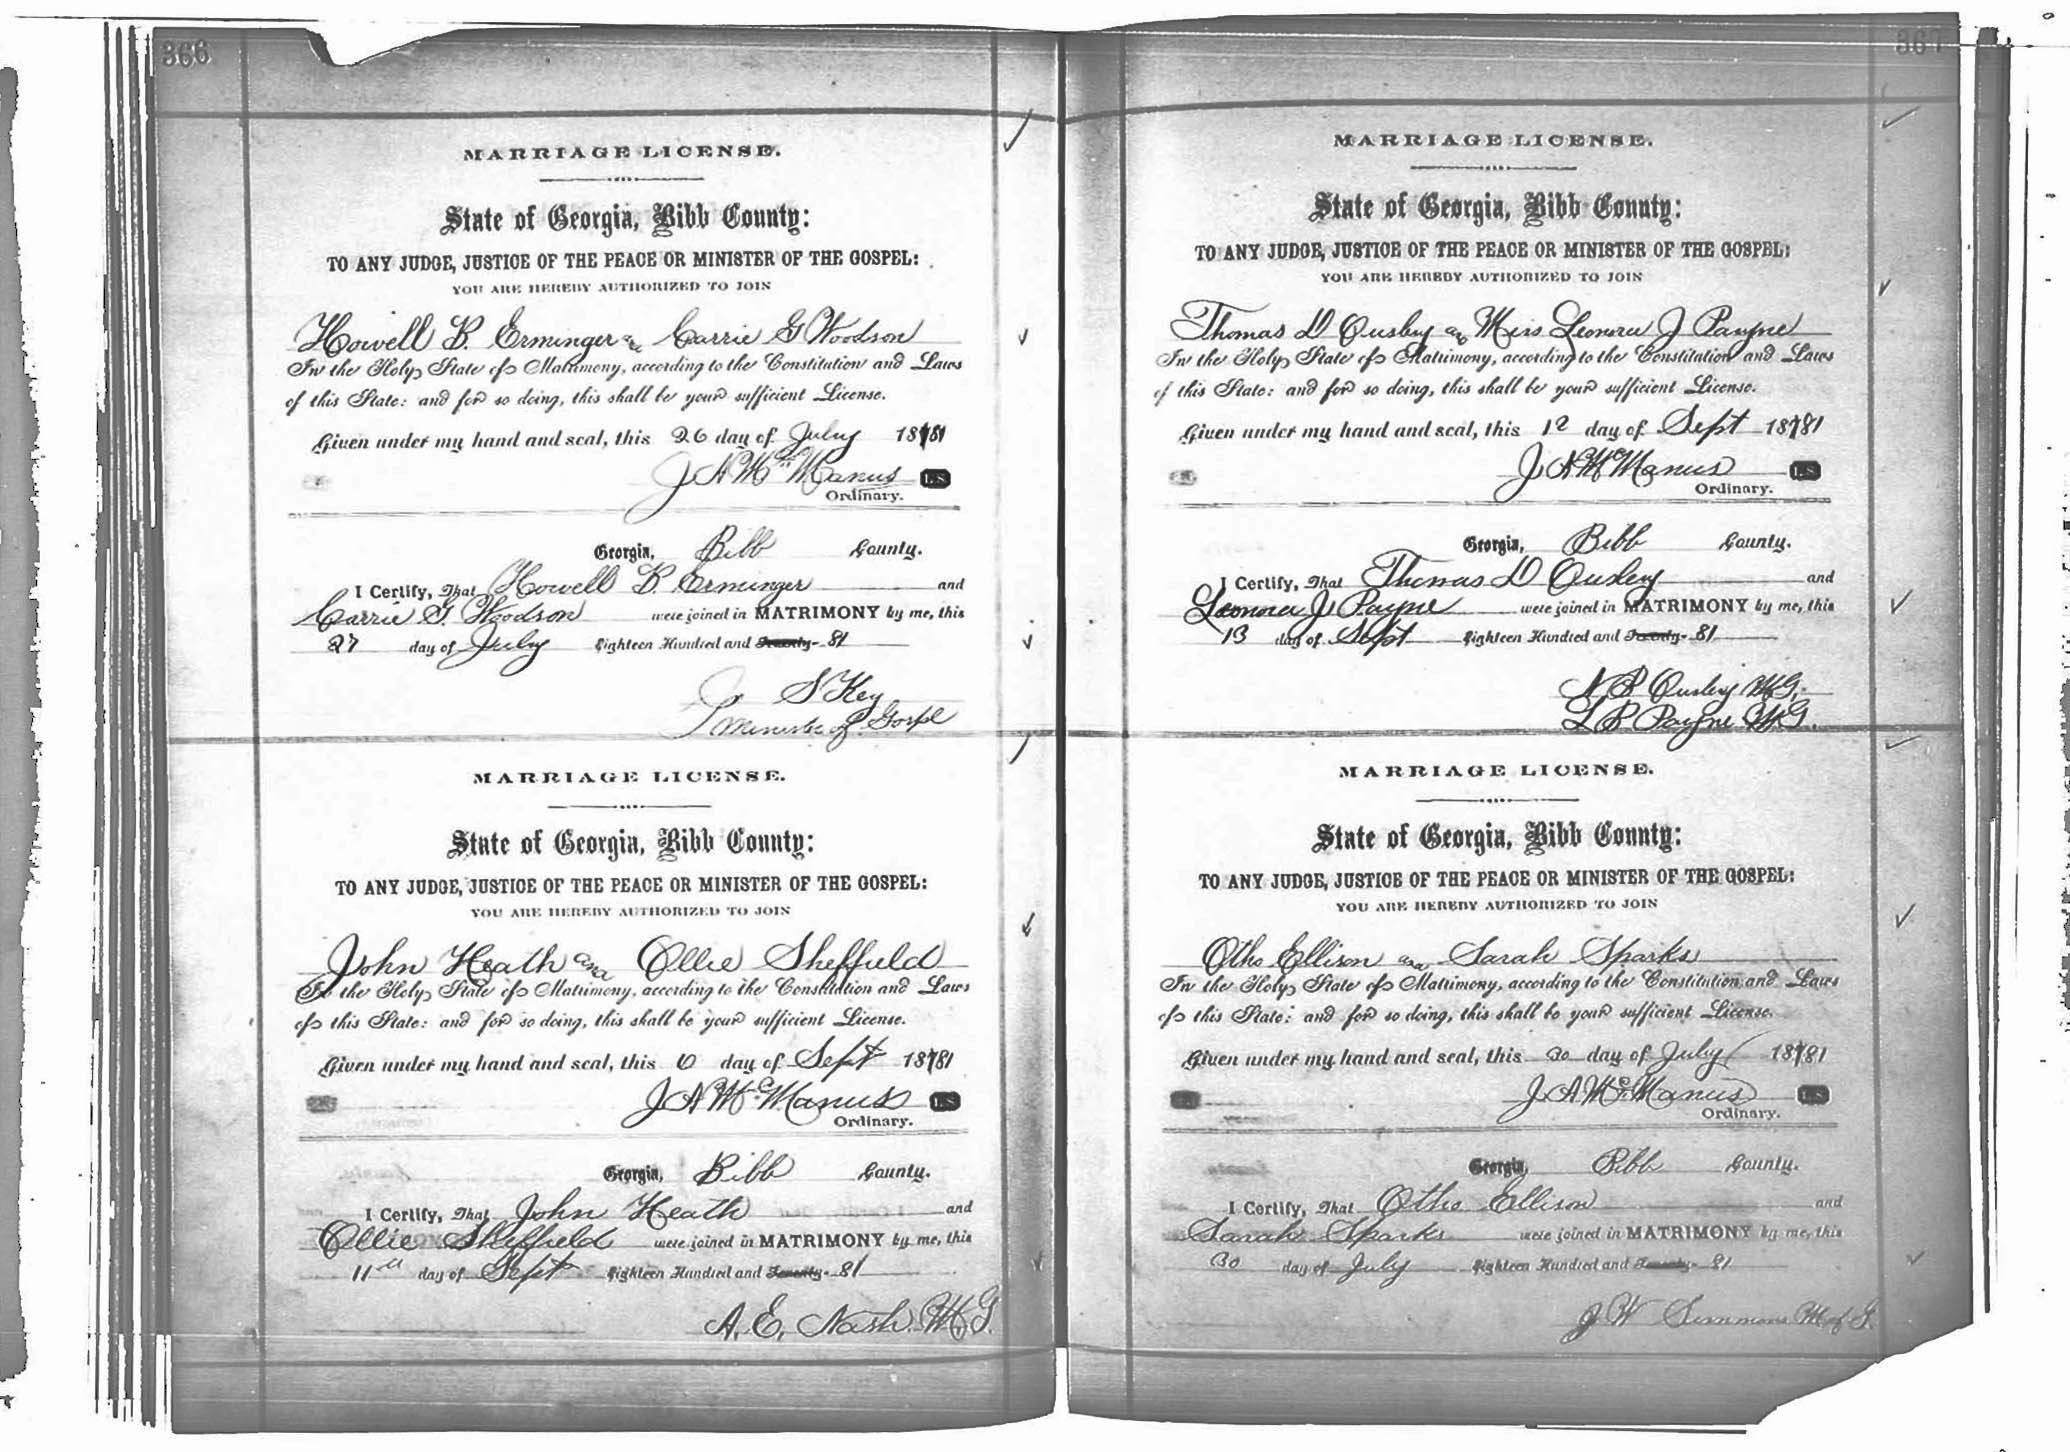 366
MARRIAGE LICENSE.
State of Georgia, Bibb County:
TO ANY JUDGE, JUSTICE OF THE PEACE OR MINISTER OF THE GOSPEL:
YOU ARE HEREBY AUTHORIZED TO JOIN
Howell B. Erminger & Carrie G Woodson
In the Holy State of Matrimony, according to the Constitution and Laws
of this State: and for so doing, this shall be your sufficient License.
Given under my hand and seal, this 26 day of July 1881
J A McManus L.S.
Ordinary.
Georgia, Bibb County.
I Certify, That Howell B. Erminger and
Carrie G. Woodson were joined in MATRIMONY by me, this
27 day of July Eighteen Hundred and Seventy- 81
S Key
Minister of Gospel
MARRIAGE LICENSE.
State of Georgia, Bibb County:
TO ANY JUDGE, JUSTICE OF THE PEACE OR MINISTER OF THE GOSPEL:
YOU ARE HEREBY AUTHORIZED TO JOIN
John Heath and Ollie Sheffield
In the Holy State of Matrimony, according to the Constitution and Laws
of this State: and for so doing, this shall be your sufficient License.
Given under my hand and seal, this day of Sept 1881
J A McManus L.S.
Ordinary.
Georgia, Bibb County.
I Certify, That John Heath and
Ollie Sheffield were joined in MATRIMONY by me, this
11th day of Sept Eighteen Hundred and Seventy- 81
A. E. Nash M.G.
367
MARRIAGE LICENSE.
State of Georgia, Bibb County:
TO ANY JUDGE, JUSTICE OF THE PEACE OR MINISTER OF THE GOSPEL:
YOU ARE HEREBY AUTHORIZED TO JOIN
Thomas D Ousley and Miss Leonora J Payne
In the Holy State of Matrimony, according to the Constitution and Laws
of this State: and for so doing, this shall be your sufficient License.
Given under my hand and seal, this 12 day of Sept 1881
J A McManus L.S.
Ordinary.
Georgia, Bibb County.
I Certify, That Thomas D Ousley and
Leonora J Payne were joined in MATRIMONY by me, this
13 day of Sept Eighteen Hundred and Seventy- 81
N B Ousley M.G.
L B Payne M.G.
MARRIAGE LICENSE.
State of Georgia, Bibb County:
TO ANY JUDGE, JUSTICE OF THE PEACE OR MINISTER OF THE GOSPEL:
YOU ARE HEREBY AUTHORIZED TO JOIN
Otho Ellison and Sarah Sparks
In the Holy State of Matrimony, according to the Constitution and Laws
of this State: and for so doing, this shall be your sufficient License.
Given under my hand and seal, this 30 day of July 1881
J A McManus L.S.
Ordinary.
Georgia, Bibb County.
I Certify, That Otho Ellison and
Sarah Sparks were joined in MATRIMONY by me, this
30 day of July Eighteen Hundred and Seventy- 81
J W Simmons M of G.